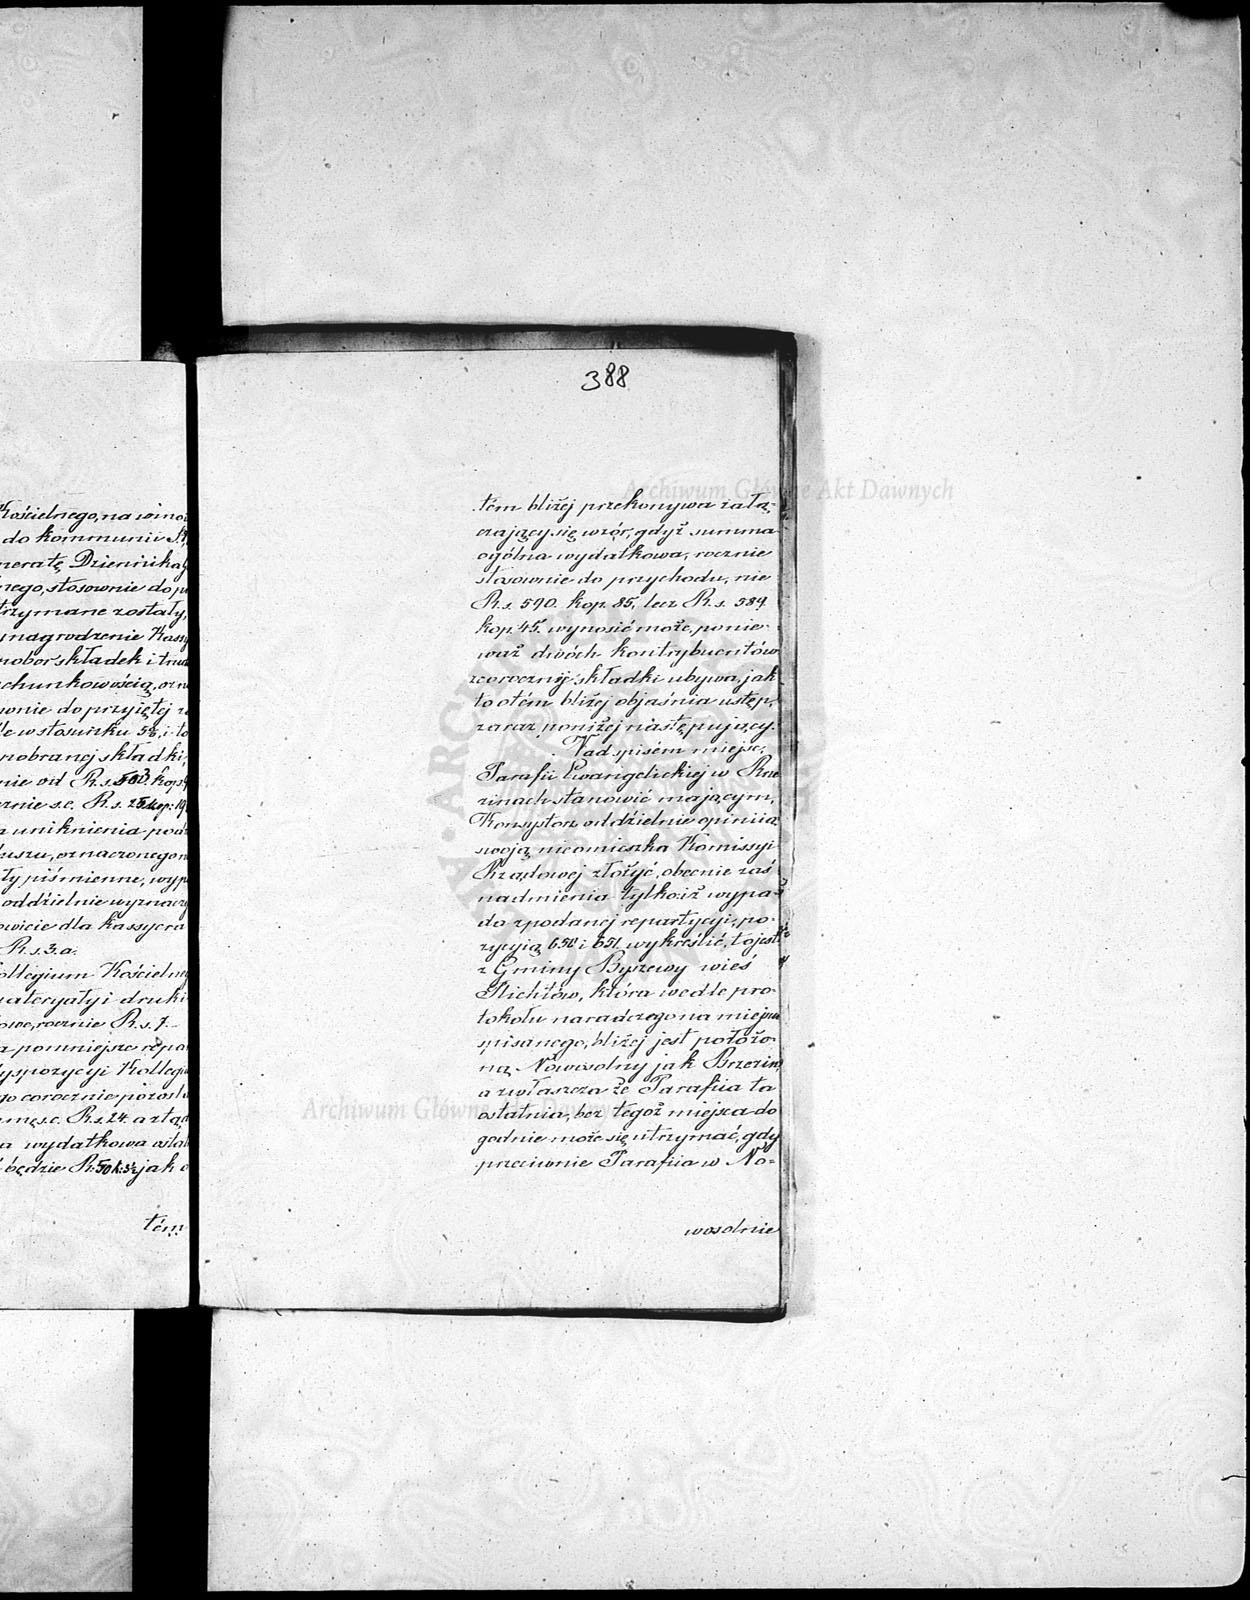 Kościelnego, na wino
do kommunii S.
neratę Dziennika
nego, stosownie do p
trzymane zostały,
nagrodzenie Kass
pobor składek i trud
chunkowością, ozna
wnie do przyiętej z
le w stosunku 5%, i to
pobranej składki,
nie od R.s. 503. kop.
cznie s.e. R.s. 25. kop: 19
a uniknienia pod
uszu, oznaczonego
ły piśmienne, wyp
oddzielnie wyznacz
owicie dla kassyera
R.s. 3. a.
ollegium Kościelne
ateryały i druki
owe, rocznie R.s. 7.
a pomniejsze repa
yspozycyi Kolleg
go corocznie pozost
mę s.e. R.s. 24. a złą
a wydatkowa osta
będzie R. 50 k. jak o
tém
388
tém bliżej przekonywa załą-
czający się wzór, gdyż summa
ogólna wydatkowa, rocznie
stosownie do przychodu, nie
R.s. 590. kop. 85, lecz R.s. 589
kop. 45. wynosić może, ponie-
waż dwóch kontrybuentów
z corocznéj składki ubywa, jak
to o tém bliżej objaśnia ustęp,
zaraz poniżej następujący.
Nad spisem miejsc,
Parafii Ewangelickiej w Brze
zinach stanowić mającym,
Konsystorz oddzielnie opiniią
swoją nieomieszka Kommissyi
Rządowej złożyć, obecnie zaś
nadmienia tylko iż wypa-
da z podanej repartycyi, po-
zycyią 650 i 651 wykreślić, to jest
z Gminy Byszewy wieś
Plichtów, która wedle pro-
tokołu naradczego na miejscu
spisanego, bliżej jest położo-
ną Nowosolny jak Brzezin,
a zwłaszcza że Parafiia ta
ostatnia, bez tegoż miejsca do
godnie może się utrzymać, gdy
przeciwnie Parafiia w No-
wosolnie
Archiwum Główne Akt Dawnych
Archiwum Główne Akt Dawnych